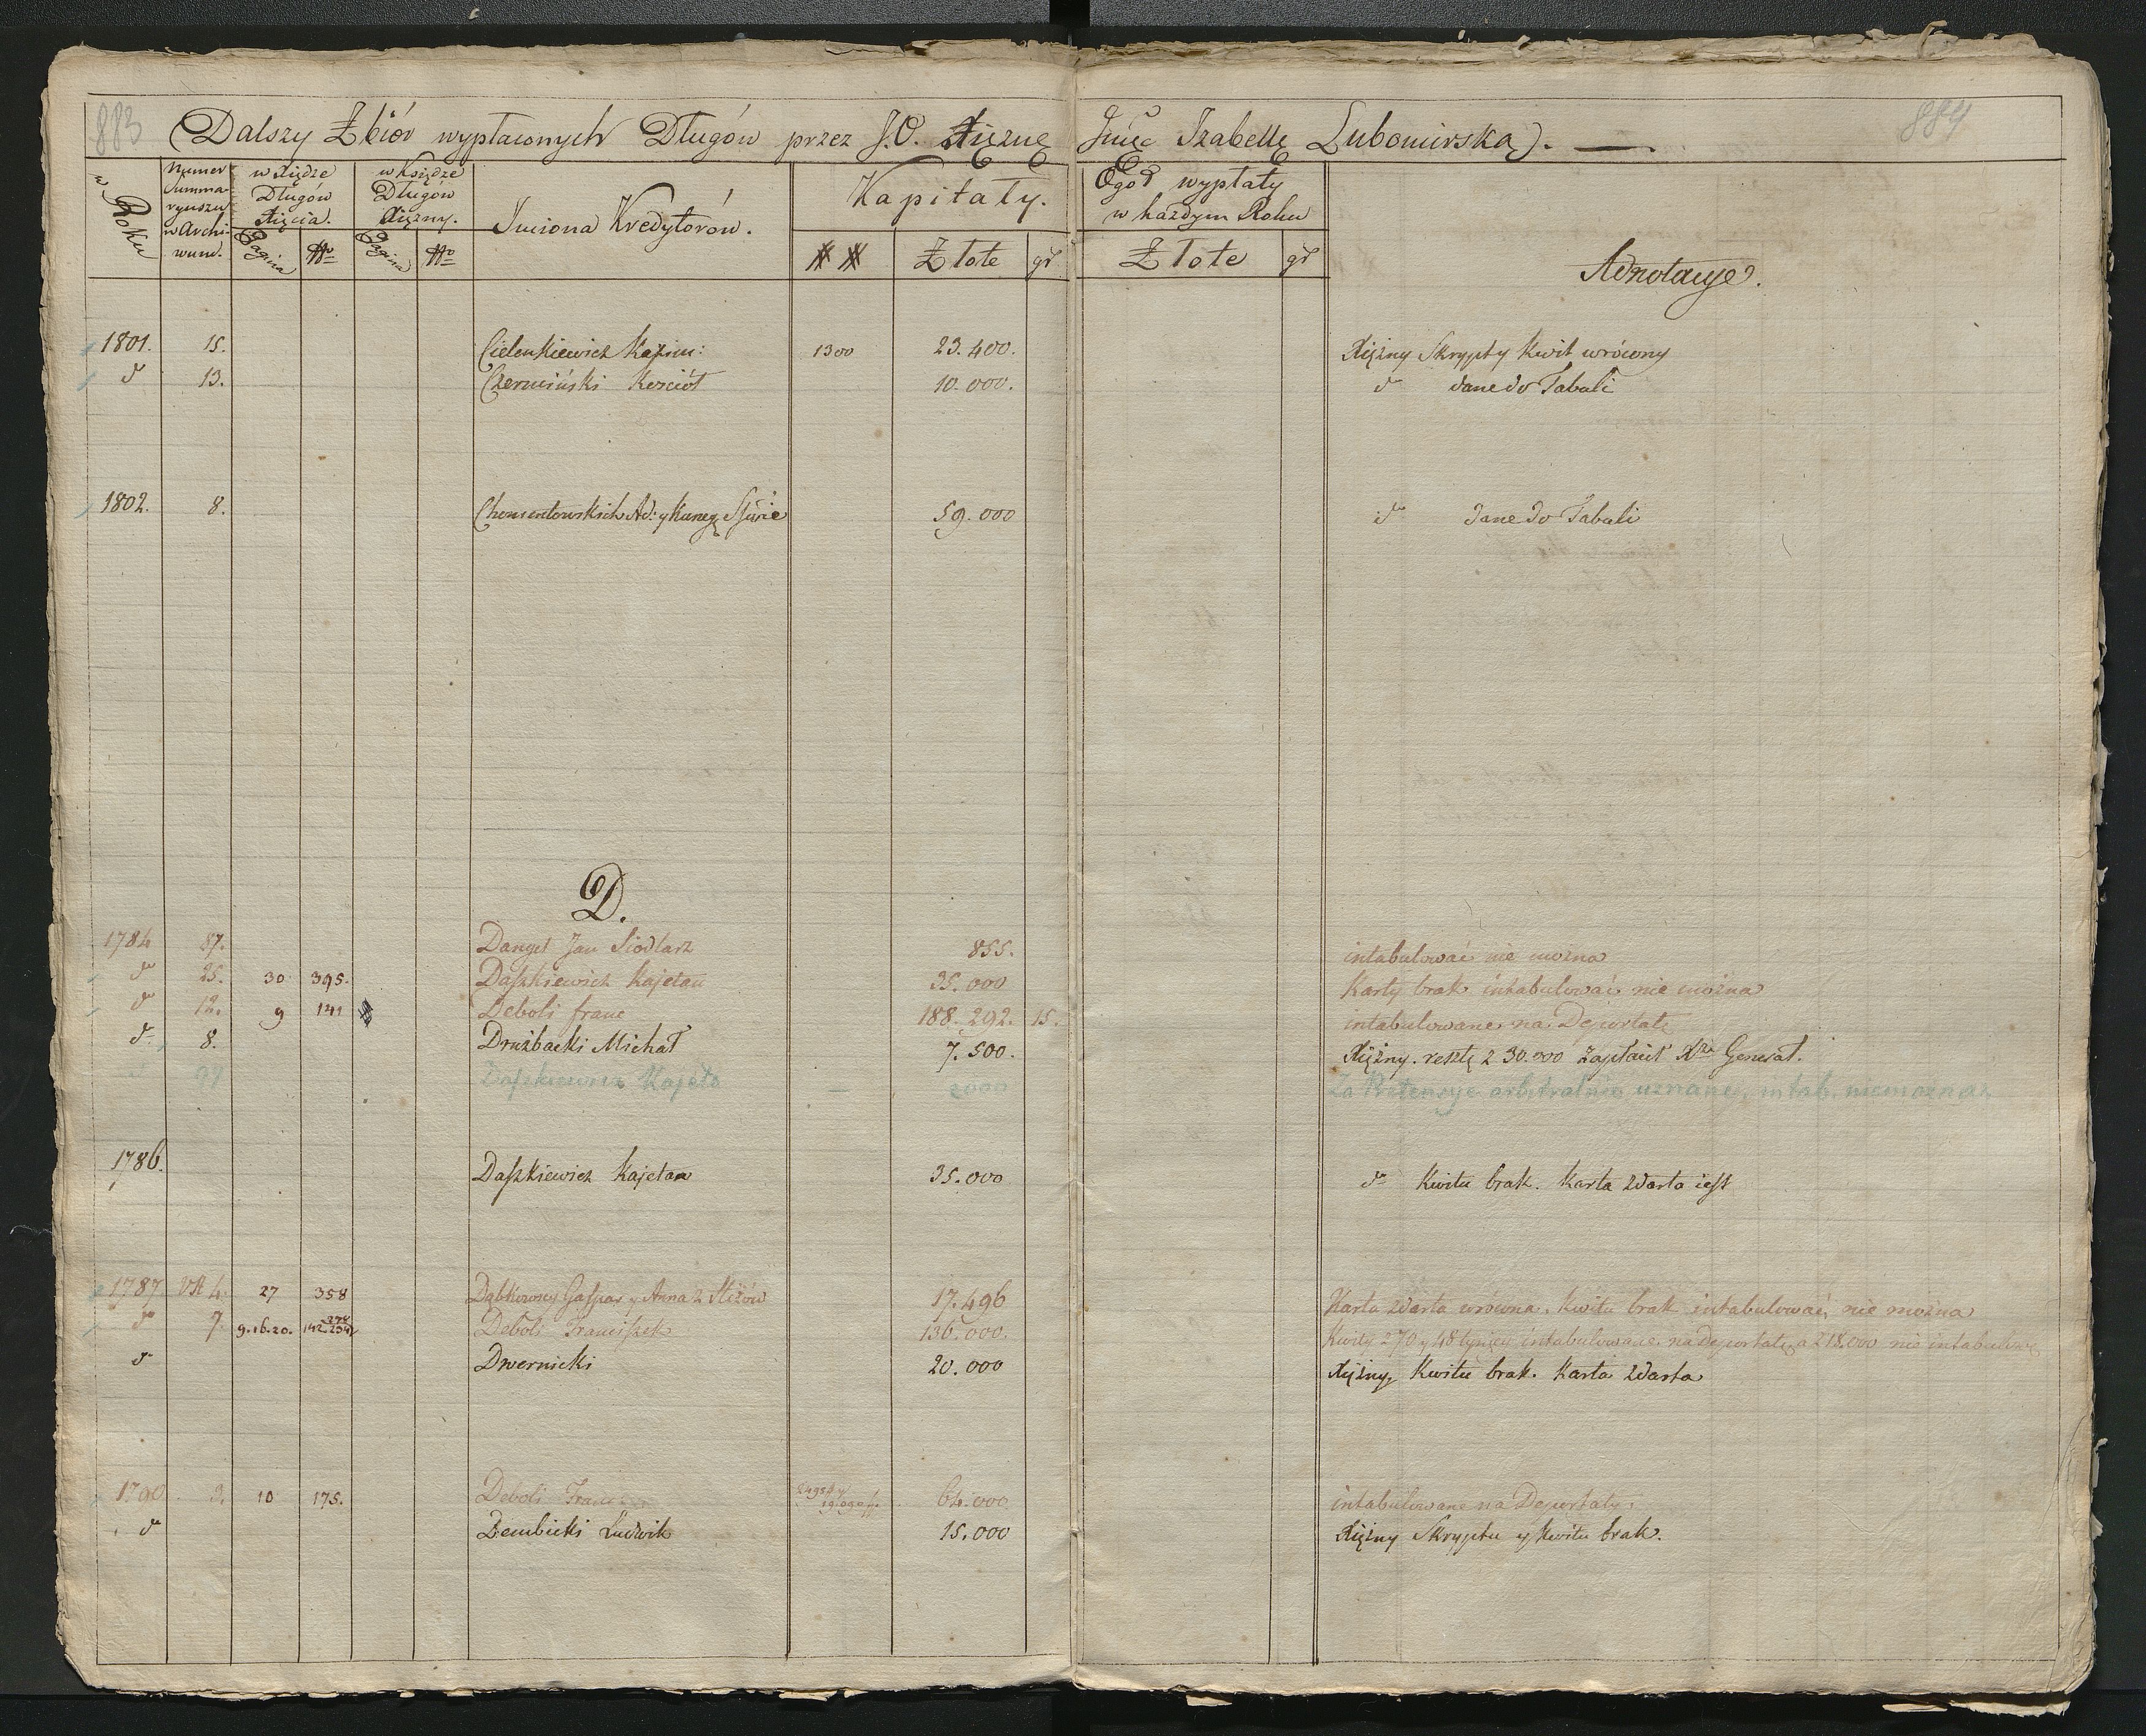 883
884
Dalszy Zbiór wypłaconych Długów przez J.O. Xiężnę Jmię Izabellę Lubomirską.
w Roku
Numer Summaryuszu w Archiwum.
w Xiędze Długów Xięcia.
w Księdze Długów Xiężny.
Pagina No Pagina No
Imiona Kredytorów.
Kapitały.
## Złote gr
Ogół wypłaty w każdym Roku
Złote gr
Adnotacye.
1801. 15. Cielenkiewicz Kazim: 1300 23.400. Xiężny Skrypty Kwit wrócony
do 13. Czermiński Kościół 10.000. do dane do Tabuli
1802. 8. Chomentowskich Ad: y Kuneg. 59.000 do dane do Tabuli
D.
1784 87. Dangel Jan Siodlarz 855. intabulować nie można
do 25. 30 395. Daszkiewicz Kajetan 35.000 Karty brak intabulować nie można
do 12. 9 141 Deboli franc 188.292. 15. intabulowane na Deportatę
do 8. Drużbacki Michał 7.500. Xiężny. resztę z 30.000 zapłacił Xże Generał.
do 97 Daszkiewicz Kajeta — 2000 Za Pretensye arbitralnie uznane, intab. niemożna
1786. Daszkiewicz Kajetan 35.000 do Kwitu brak. Karta zdarta iest
1787 VA 4. 27 358 Dąbkowscy Gaspar y Anna z 17.496 Karta zdarta wrócona. Kwitu brak intabulować nie można
do 7. 9.16.20. 142. Deboli Franciszek 136.000. Kwity z 70 y 48 tyięcy intabulowane na Deportatę a z 18.000 nie intabulow
do Dwernicki 20.000 Xiężny Kwitu brak. Karta zdarta
1790 9. 10 175. Deboli Francisz 64.000 intabulowane na Deportatę.
do Dembicki Ludwik 15.000 Xiężny Skryptu y Kwitu brak.